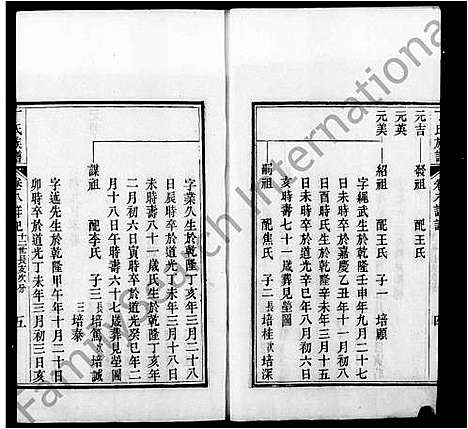 氏族譜
四
元吉
發祖 配王氏
元英
元美
紹祖 配王氏 子一 培顧
字繩武生於乾隆壬申年九月二十七
日未時卒於嘉慶乙丑年十一月初八
日酉時氏生於乾隆辛未年三月初八
日未時卒於道光辛巳年八月初六日
亥時壽七十一歲葬見塋圖
嗣祖 配焦氏 子二 長培桂 次培深
字業久生於乾隆丁亥年三月二十八
日辰時卒於道光丁未年三月二十三日
未時壽八十一歲氏生於乾隆丁亥年
二月初六日寅時卒於道光癸巳年二
月十八日午時壽六十七歲葬見塋圖
謀祖 配李氏 子三 長培篤 次培誠 三培泰
字述先生於乾隆甲午年十月二十日
卯時卒於道光丁未年三月初三日亥
氏族譜
五
FamilySearch International